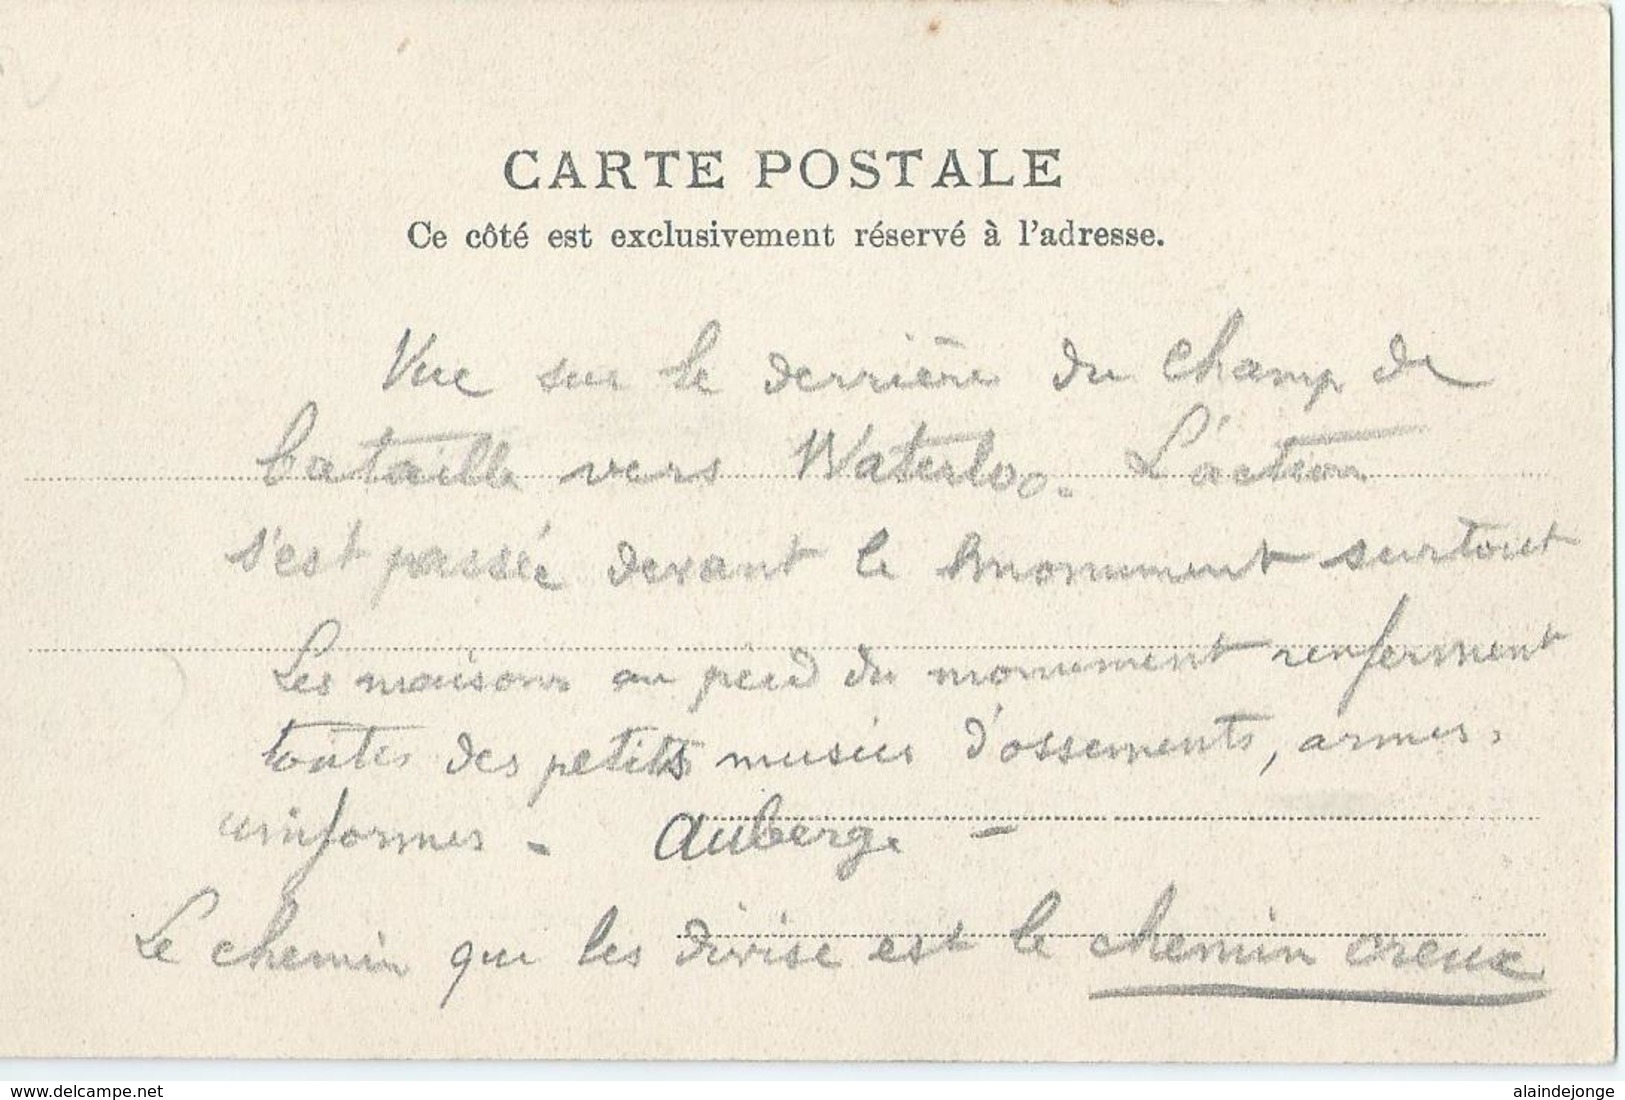 CARTE POSTALE
Ce côté est exclusivement réservé à l'adresse.
Vue sur le derrière du champ de
bataille vers Waterloo. L'action
s'est passée devant le monument surtout
Les maisons au pied du monument renferment
toutes des petits musées d'ossements, armes,
uniformes - Auberge -
Le chemin qui les divise est le chemin creux
delcampe.net
alaindejonge